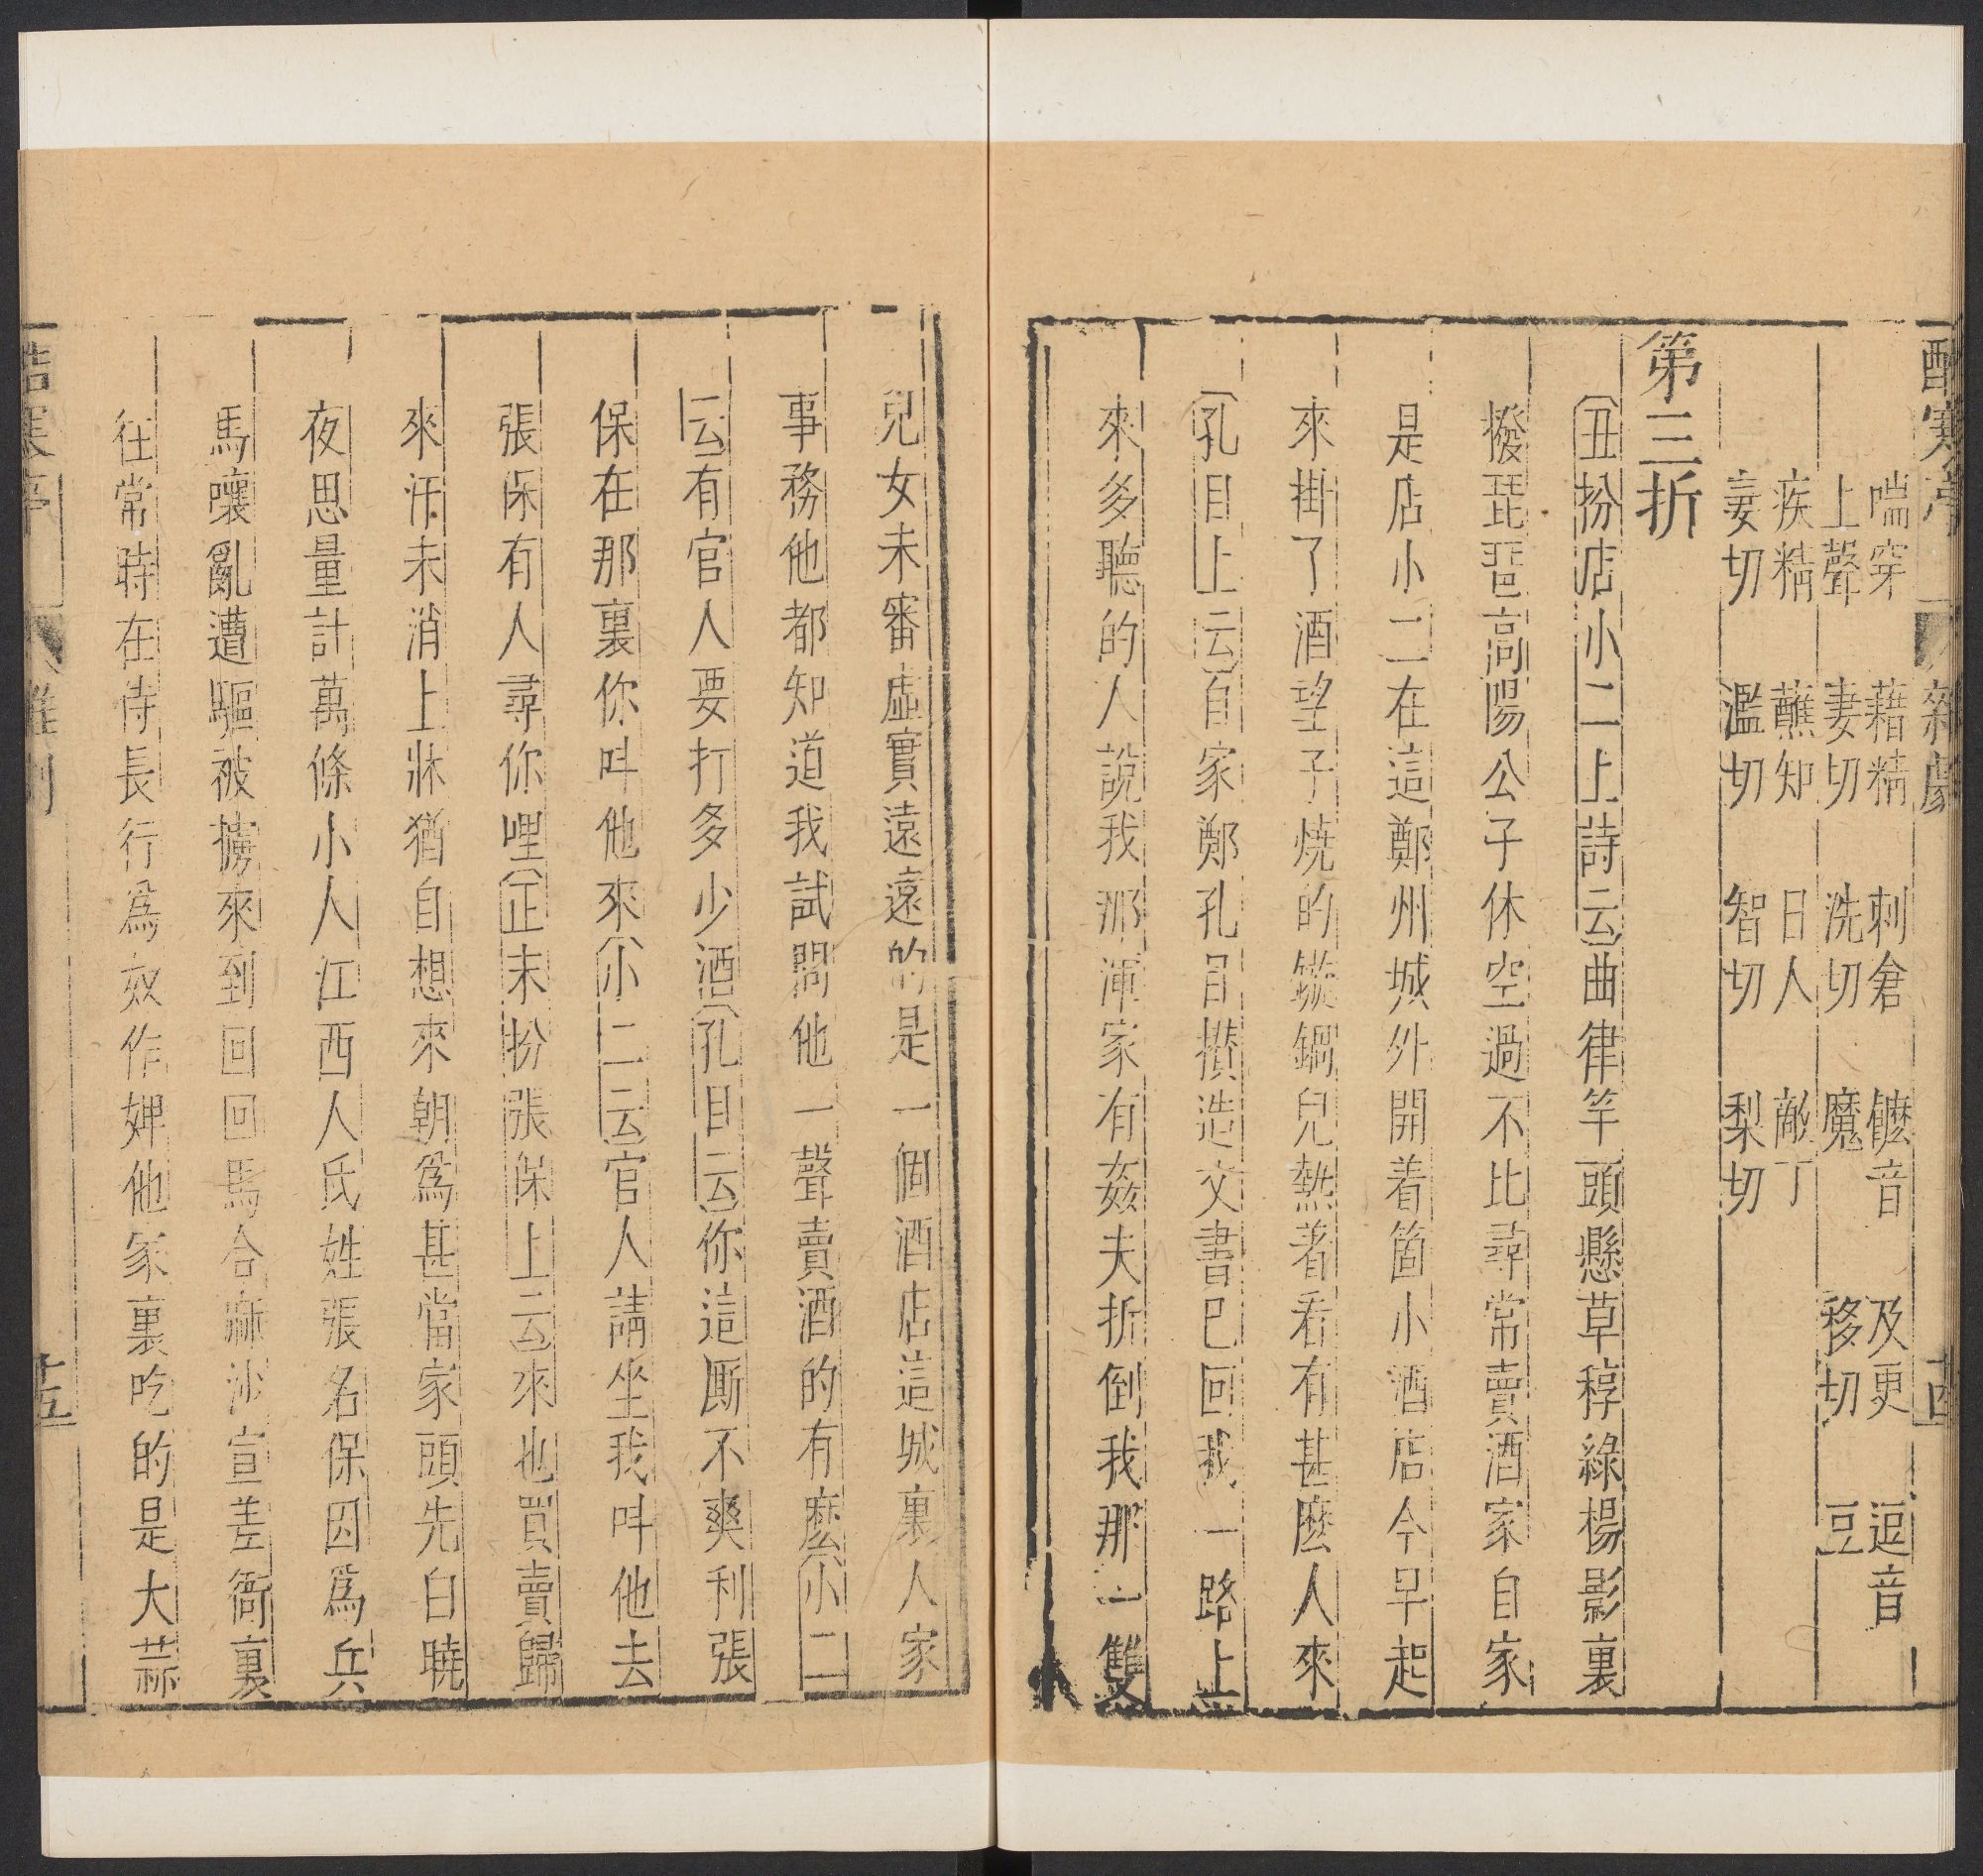 酷寒亭 雜劇 十四
喘穿 藉精 刺倉 饝音 及更 逗音
上聲 妻切 洗切 魔 移切 豆
疾精 蘸知 日人 敵丁
妻切 濫切 智切 梨切
第三折
〔丑扮店小二上詩云〕曲律竿頭懸草稕綠楊影裏
撥琵琶高陽公子休空過不比尋常賣酒家自家
是店小二在這鄭州城外開着箇小酒店今早起
來掛了酒望子燒的鏇鍋兒熱着看有甚麼人來
〔孔目上云〕自家鄭孔目攢造文書巳回我一路上
來多聽的人說我那渾家有姦夫折倒我那一雙
兒女未審虛實遠遠的是一個酒店這城裏人家
事務他都知道我試問他一聲賣酒的有麼〔小二
云〕有官人要打多少酒〔孔目云〕你這厮不爽利張
保在那裏你叫他來〔小二云〕官人請坐我叫他去
張保有人尋你哩〔正末扮張保上云〕來也買賣歸
來汗未消上牀猶自想來朝爲甚當家頭先白曉
夜思量計萬條小人江西人氏姓張名保因爲兵
馬嚷亂遭驅被擄來到回回馬合麻沙宣差衙裏
往常時在侍長行爲奴作婢他家裏吃的是大蒜
酷寒亭 雜劇 十五